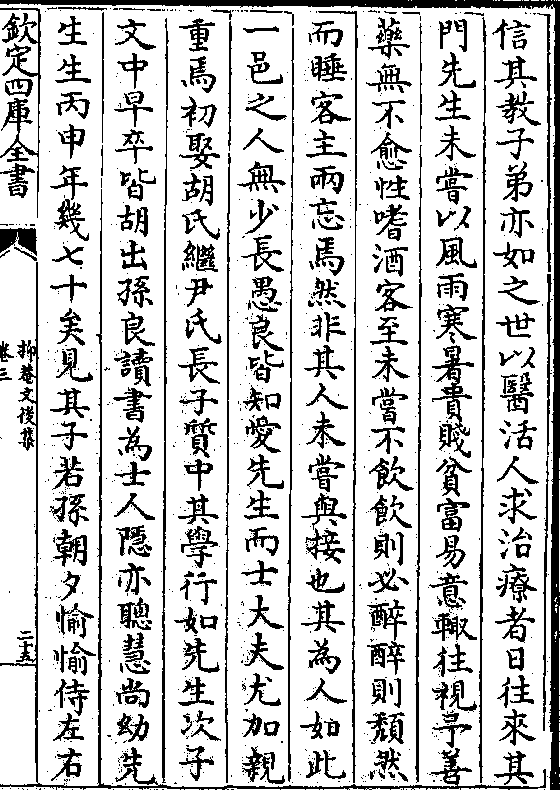 信其教子弟亦如之世以醫活人求治療者日往來其
門先生未嘗以風雨寒暑貴賤貧富易意輙往視予善
藥無不愈性嗜酒客至未嘗不飲飲則必醉醉則頹然
而睡客主兩忘焉然非其人未嘗與接也其為人如此
一邑之人無少長愚良皆知愛先生而士大夫尤加親
重焉初娶胡氏繼尹氏長子質中其學行如先生次子
文中早卒皆胡出孫良讀書為士人隱亦聰慧尚幼先
生生丙申年幾七十矣見其子若孫朝夕愉愉侍左右
欽定四庫全書
抑菴文後集
卷三
二十五